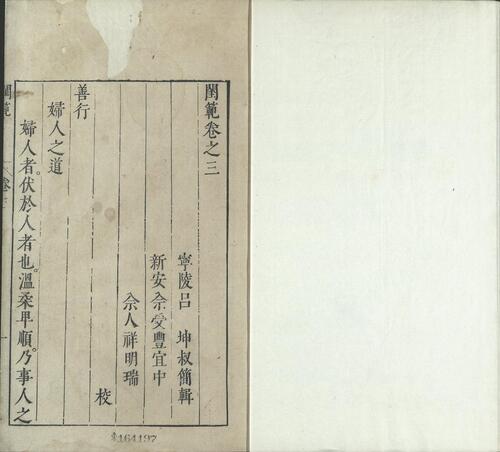 閨範卷之三
寧陵呂 坤叔簡輯
新安佘受豐宜中
佘人祥明瑞
校
善行
婦人之道
婦人者。伏於人者也。溫柔卑順。乃事人之
閨範
卷三
一
164197